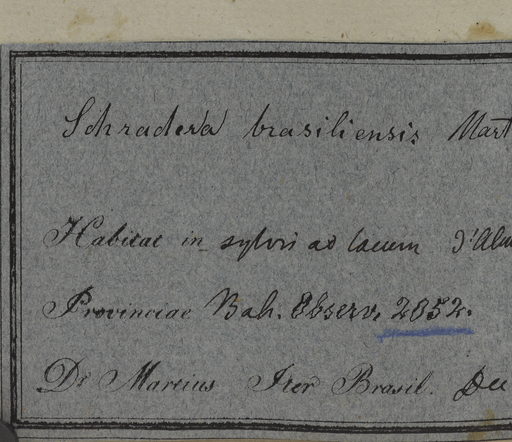 Schradera brasiliensis Mart
Habitat in sylvis ad lacum d'Alm
Provinciae Bah. Observ. 2052.
Dr Martius Iter Brasil. Dec